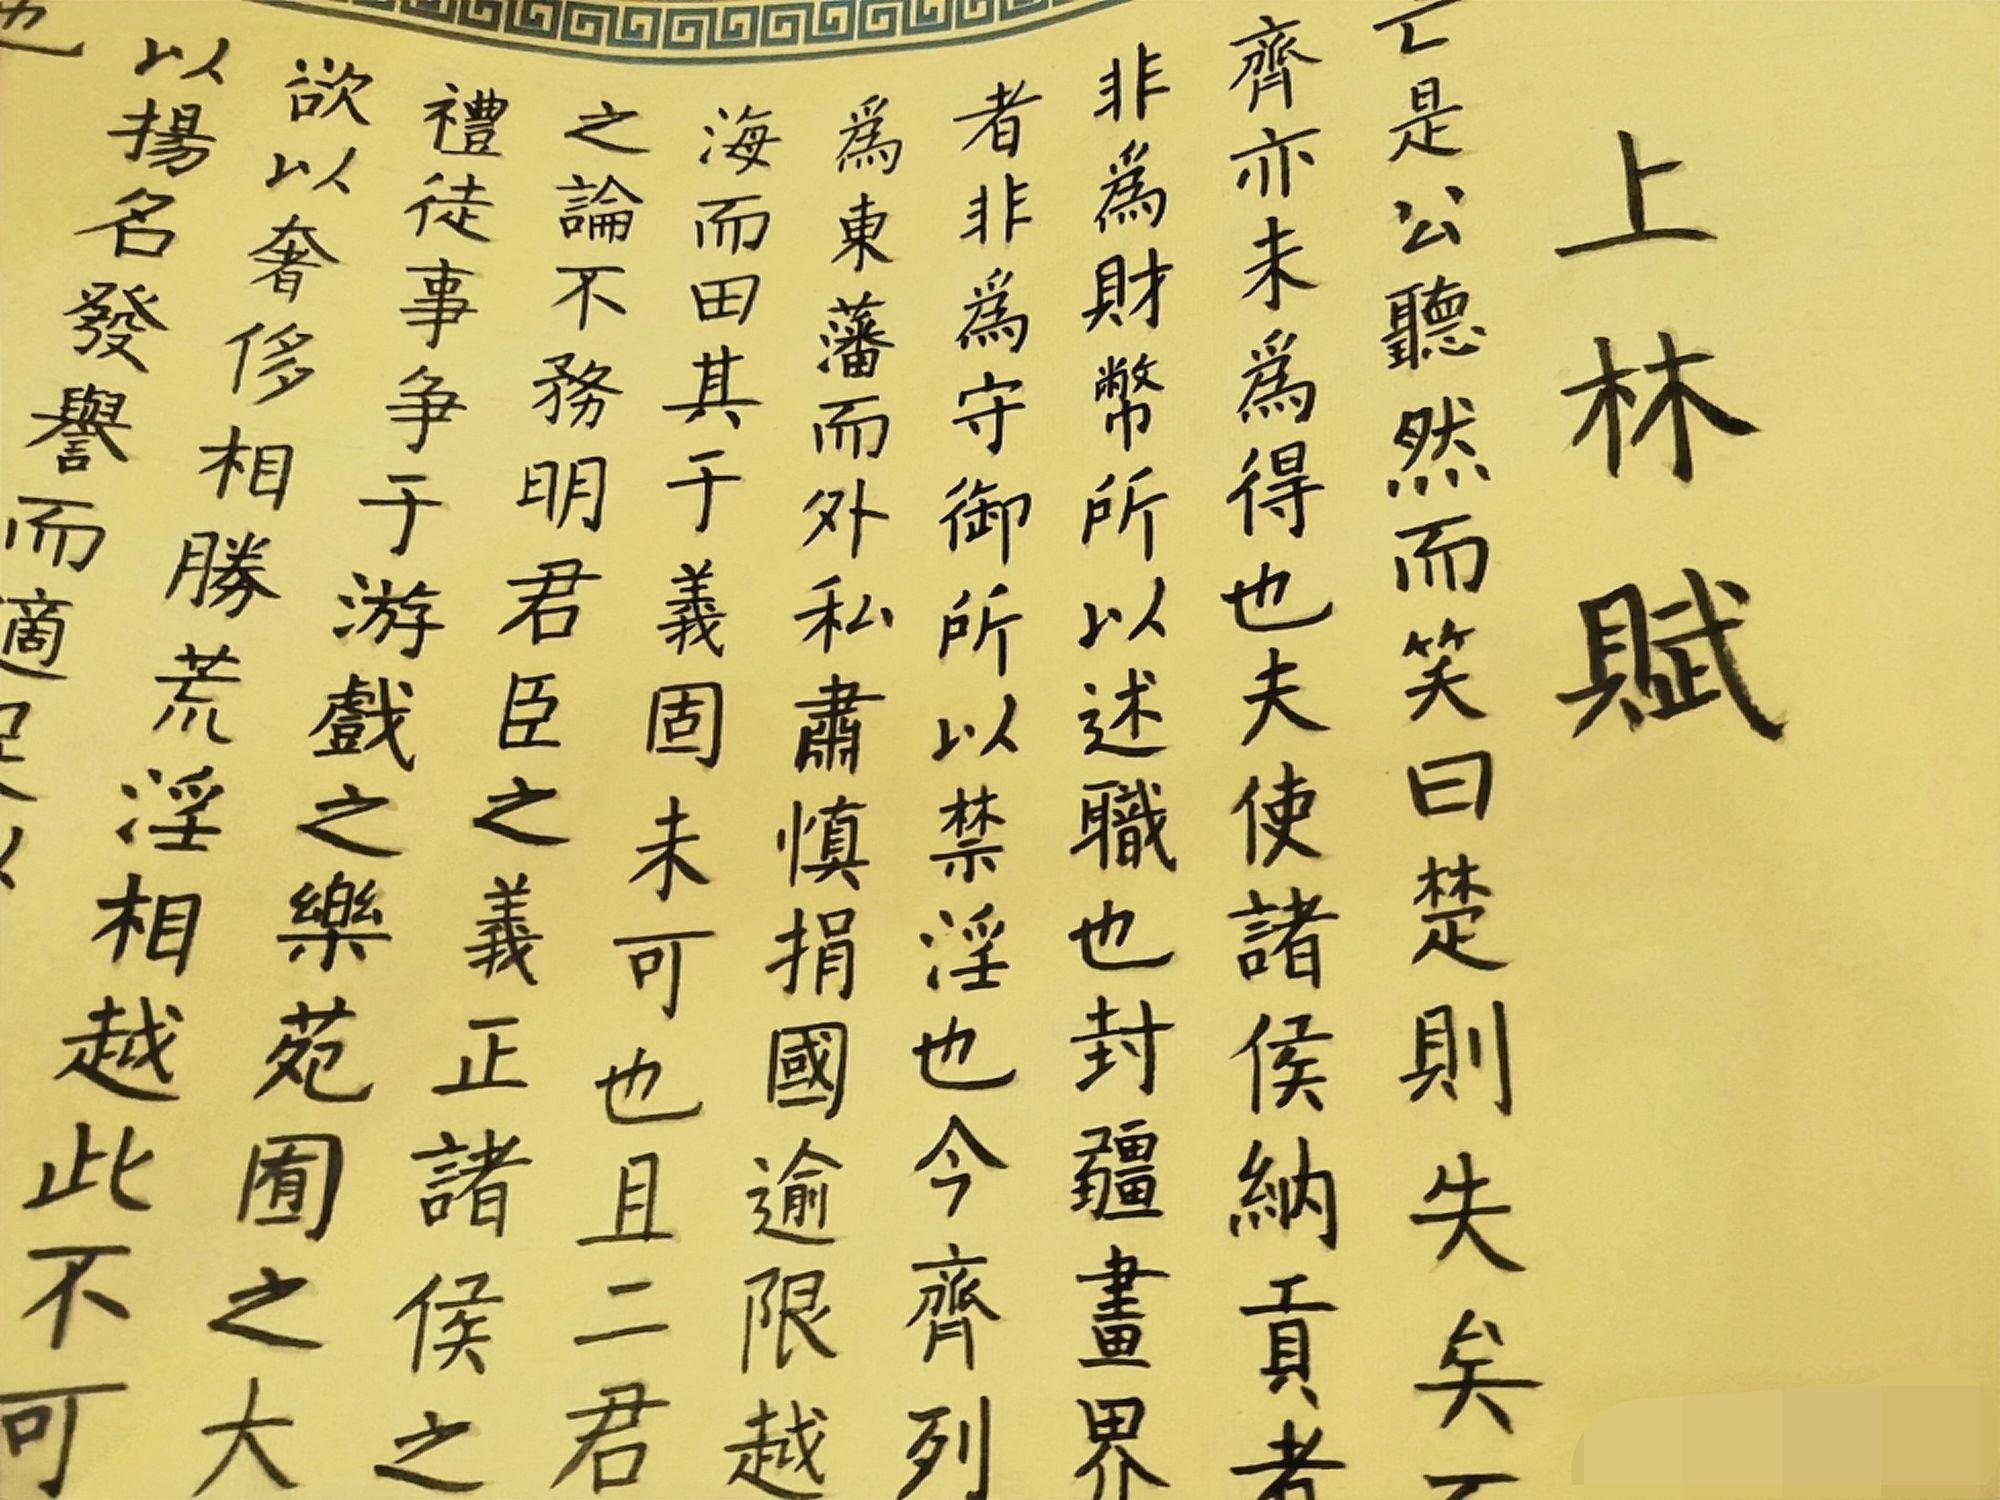 上林賦
亡是公聽然而笑曰楚則失矣
齊亦未爲得也夫使諸侯納貢者
非爲財幣所以述職也封疆畫界
者非爲守御所以禁淫也今齊列
爲東藩而外私肅慎捐國逾限越
海而田其于義固未可也且二君
之論不務明君臣之義正諸侯之
禮徒事争于游戲之樂苑囿之大
欲以奢侈相勝荒淫相越此不可
以揚名發譽而適
也